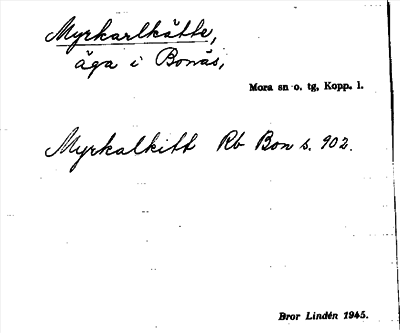 Myrkarlkätte,
äga i Bonäs,
Mora sn o. tg, Kopp. l.
Myrkalkitt Rb Bon s. 902.
Bror Lindén 1945.